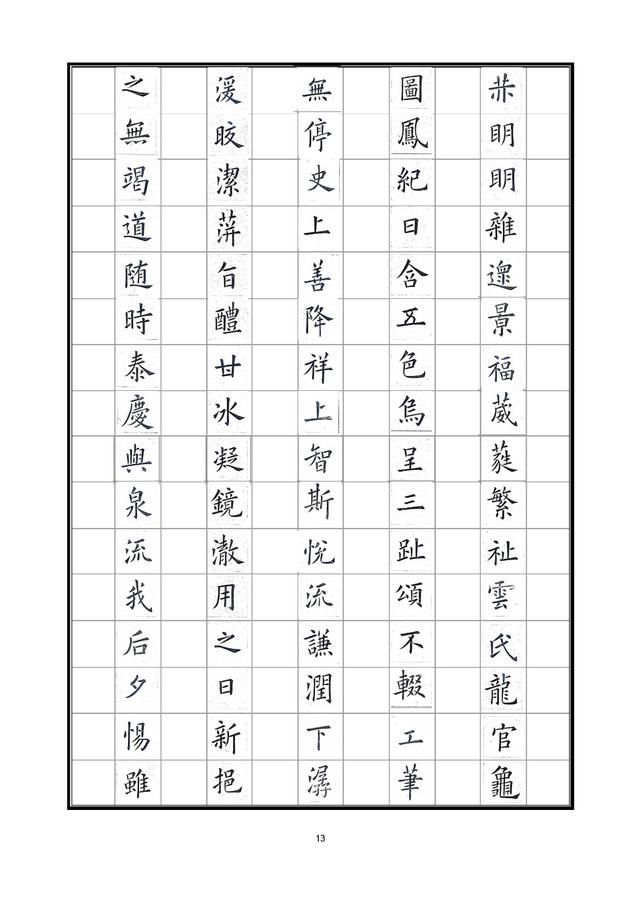 明明雜遝景福葳蕤繁祉雲氏龍官龜
圖鳳紀日含五色烏呈三趾頌不輟工筆
無停史上善降祥上智斯悅流謙潤下潺
湲晈潔萍旨醴甘冰凝鏡澈用之日新挹
之無竭道随時泰慶與泉流我后夕惕雖
13